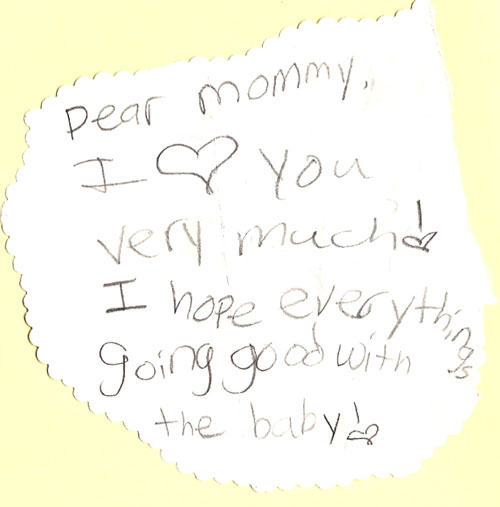 Dear mommy,
I ♡ you
very much!
I hope everythings
going good with
the baby!